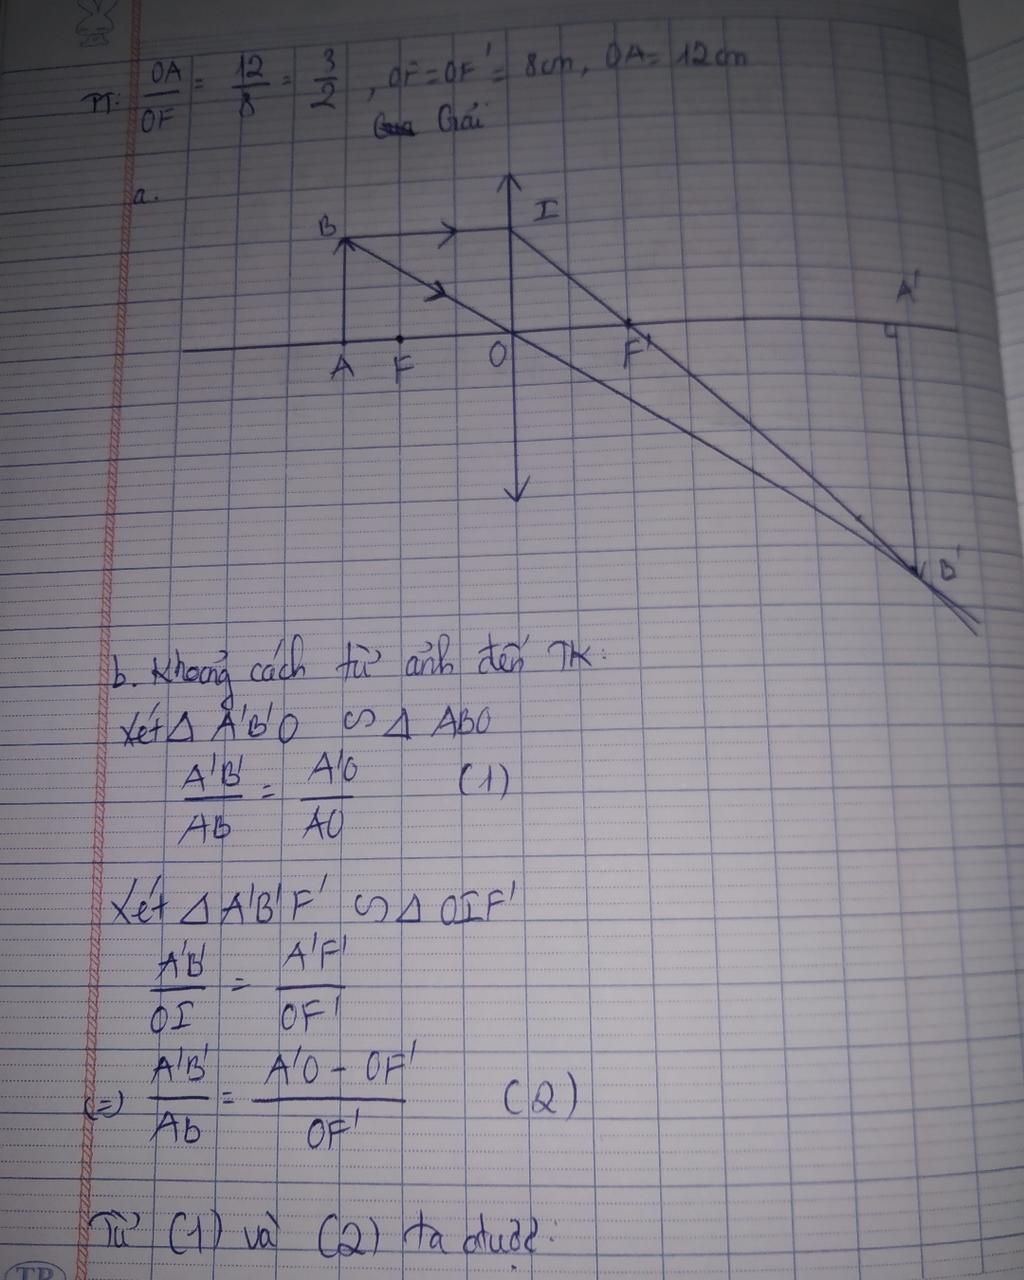 TT: OA/OF = 12/8 = 3/2 , OF = OF' = 8cm, OA = 12cm
Giải
a.
B I
A'
A F O F'
B'
b. Khoảng cách từ ảnh đến TK:
Xét Δ A'B'O ∽ Δ ABO
A'B'/AB = A'O/AO (1)
Xét Δ A'B'F' ∽ Δ OIF'
A'B'/OI = A'F'/OF'
(=) A'B'/Ab = A'O - OF'/OF' (2)
Từ (1) và (2) ta được:
TP